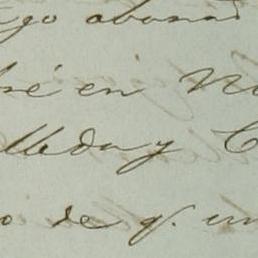 go abonad
sé en No
lleda y C
o de q. un